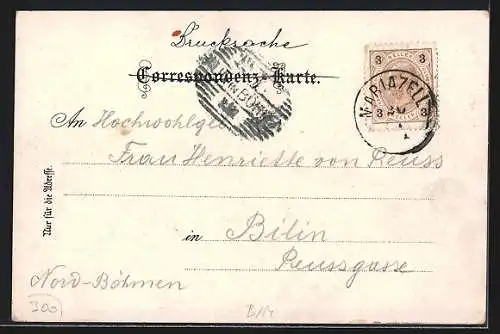 Drucksache
Correspondenz-Karte.
3 3
MARIAZELL
3 3
An Hochwohlgeb
Frau Henriette von Reuss
in Bilin
Reussgasse
Nord-Böhmen
Nur für die Adresse.
300